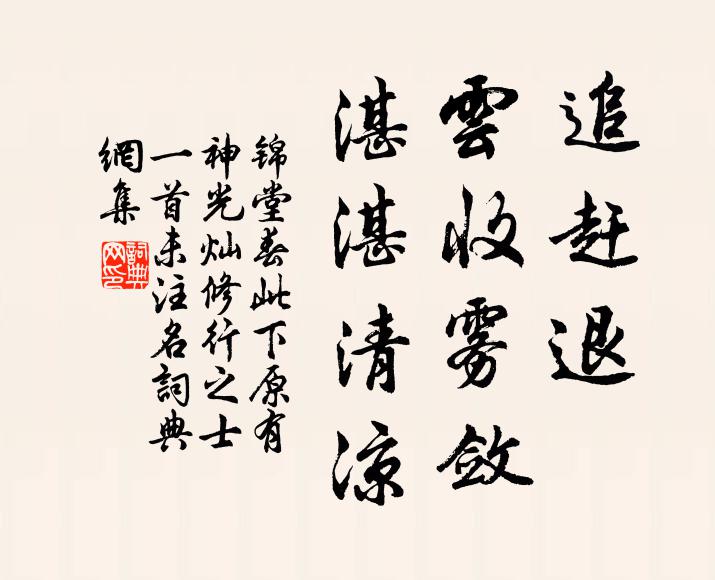 追赶退
雲收雾斂
湛湛清涼
錦堂春此下原有
神光灿修行之士
一首未注名詞典
網集
詞典網印